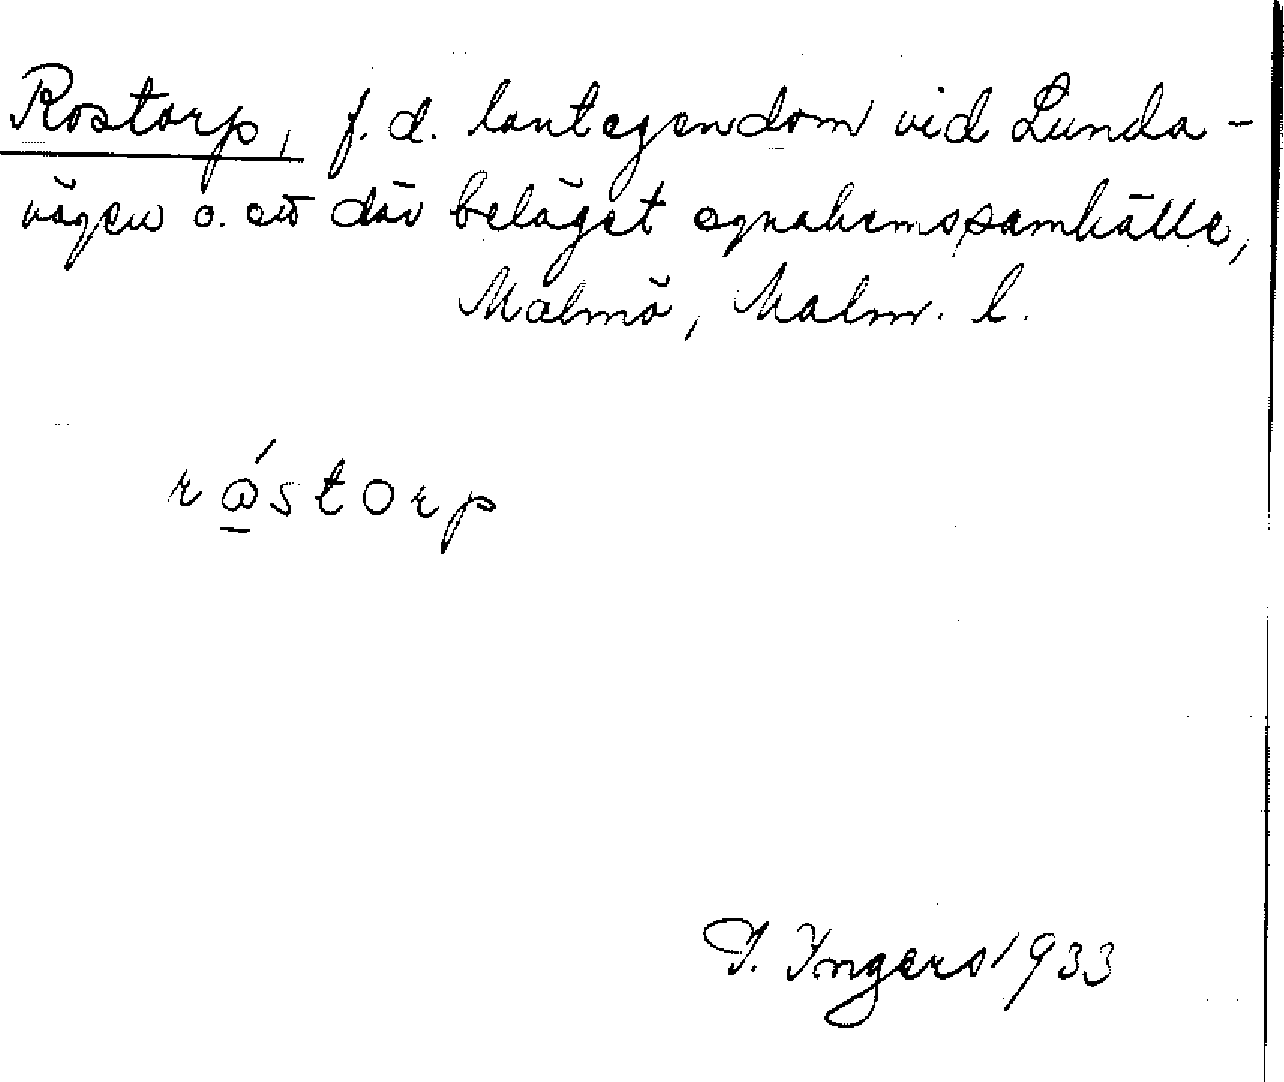 Rostorp, f.d. lantegendom vid Lunda-
vägen o. ett där beläget egnahemssamhälle,
Malmö, Malm. l.
rώ̲storp
I. Ingers 1933